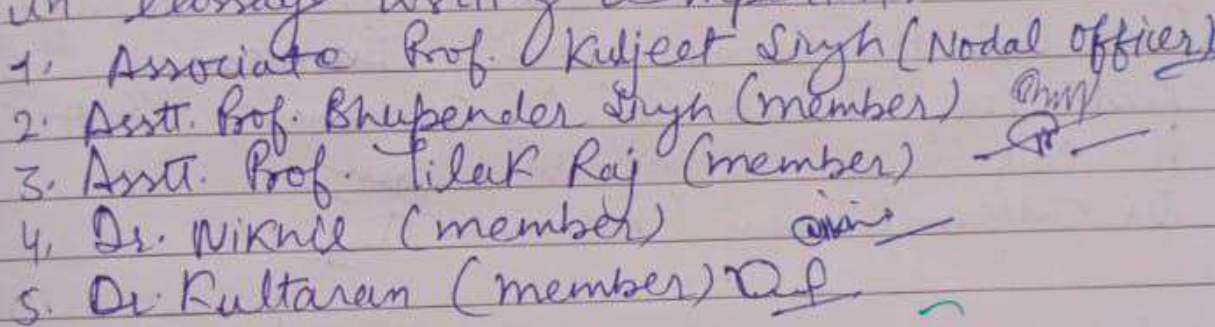 1. Associate Prof. Kuljeet Singh (Nodal Officer)
2. Asstt. Prof. Bhupender Singh (member)
3. Asstt. Prof. Tilak Raj (member)
4. Dr. Nikhil (member)
5. Dr. Kultaran (member)